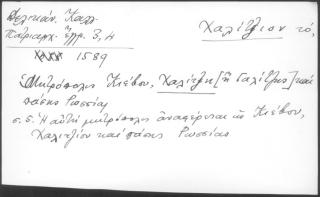 Δελικάν. Καλλ.
Πατριαρχ. ἔγγρ. 3, 4
Χαλίτζιον τό,
1589
Μητρόπολις Κιέβου, Χαλίτζης [ἢ Γαλίτζης] καὶ
πάσης Ρωσσίας
σ. 5. Ἡ αὐτὴ μητρόπολις ἀναφέρεται ὡς Κιέβου,
Χαλιτζίου καὶ πάσης Ρωσσίας